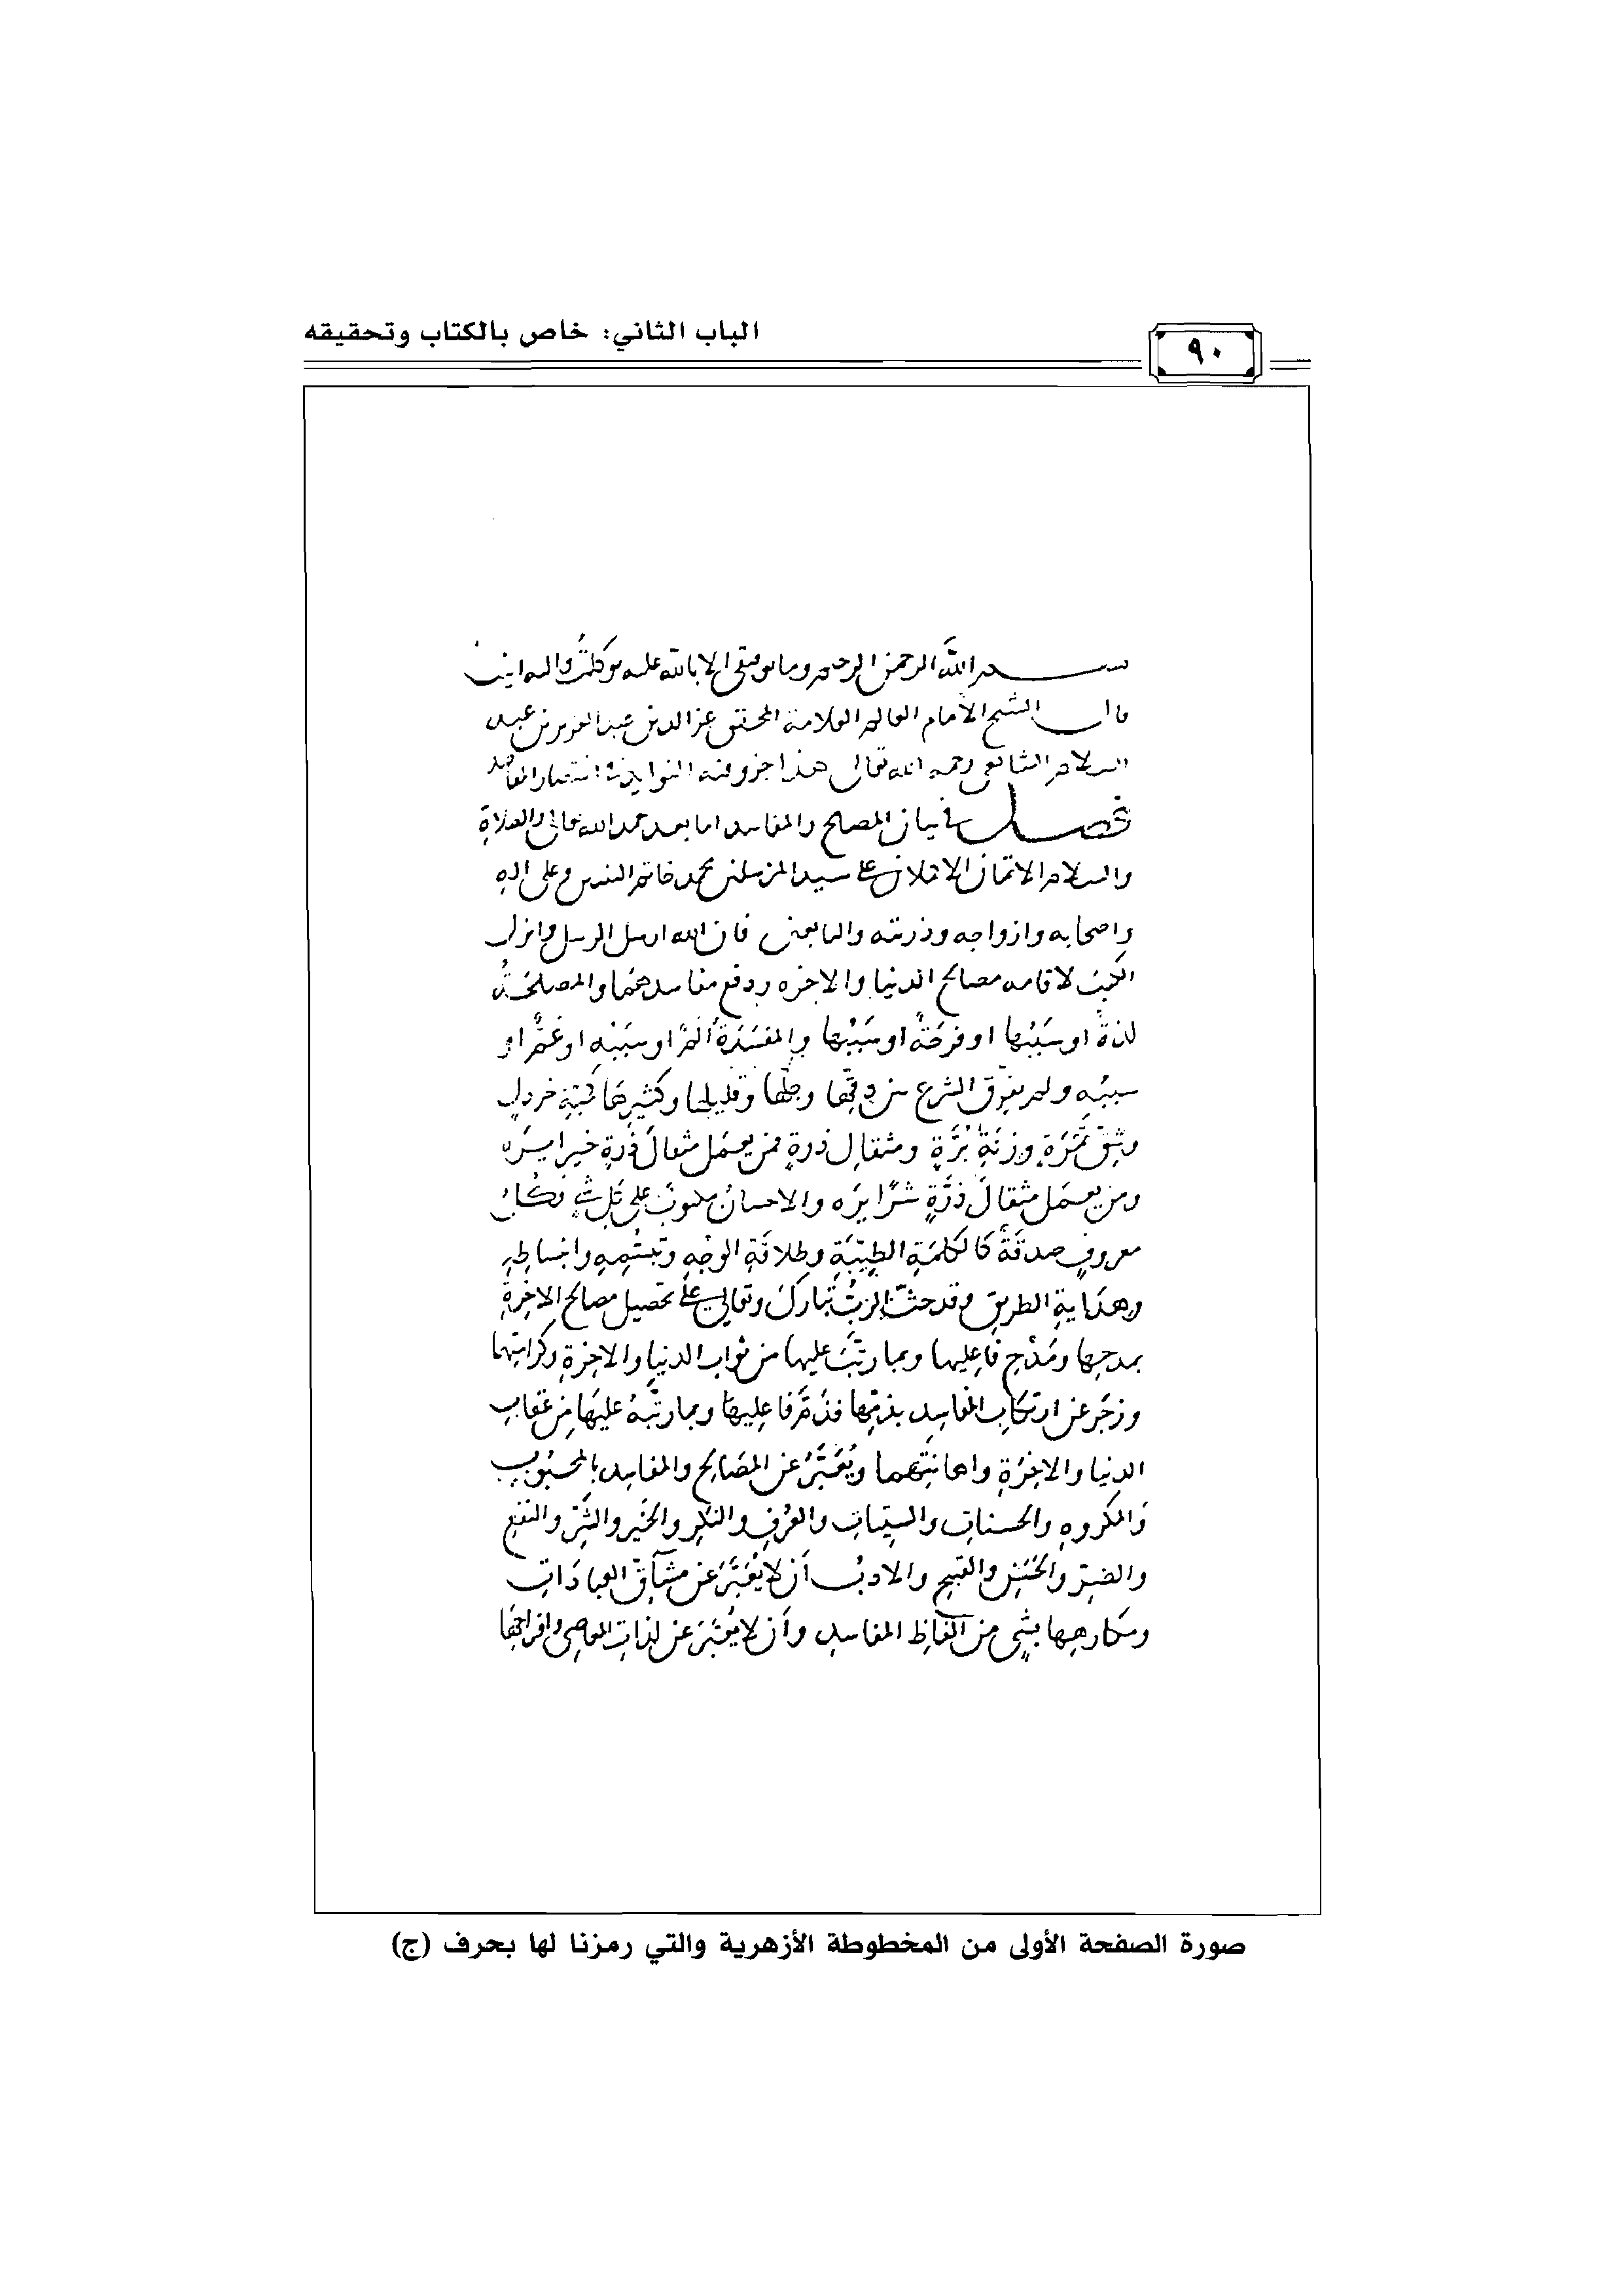 الباب الثاني: خاص بالكتاب وتحقيقه
٩٠
بسم الله الرحمن الرحيم وما توفيقي الا بالله عليه توكلت واليه انيب
قال الشيخ الأمام العالم العلامة المحقق عز الدين عبد العزيز بن عبد
السلام الشافعي رحمه الله تعالى هذا جزو فيه الفوايد في اختصار المقاصد
فصل في بيان المصالح والمفاسد اما بعد حمد الله تعالى والصلاة
والسلام الاتمان الاكملان على سيد المرسلين محمد خاتم النبيين وعلى اله
واصحابه وازواجه وذريته والتابعين فان الله ارسل الرسل وانزل
الكتب لاقامه مصالح الدنيا والاخره ودفع مفاسدهما والمصلحة
لذة او سببها او فرحة او سببها والمفسدة ألم او سببه او غم او
سببه ولم يفرق الشرع بين دقها وجلها وقليلها وكثيرها كحبة خردل
وشق تمرة وزنة برة ومثقال ذرة فمن يعمل مثقال ذرة خيرا يره
ومن يعمل مثقال ذرة شرا يره والاحسان مكتوب على كل شي وكل
معروف صدقة كالكلمة الطيبة وطلاقة الوجه وتبسمه وانبساطه
وهداية الطريق وقد حث الرب تبارك وتعالى على تحصيل مصالح الاخرة
بمدحها ومدح فاعليها وبما رتب عليها من ثواب الدنيا والاخرة وكرامتهما
وزجر عن ارتكاب المفاسد بذمها وذم فاعليها وبما رتبه عليها من عقاب
الدنيا والاخرة واهانتهما ويعبر عن المصالح والمفاسد بالمحبوب
والمكروه والحسنات والسيئات والعرف والنكر والخير والشر والنفع
والضر والحسن والقبيح والادب أن لا يعبر عن مشاق العبادات
ومكارهها بشي من ألفاظ المفاسد وأن لا يعبر عن لذات المعاصي وافراحها
صورة الصفحة الأولى من المخطوطة الأزهرية والتي رمزنا لها بحرف (ج)